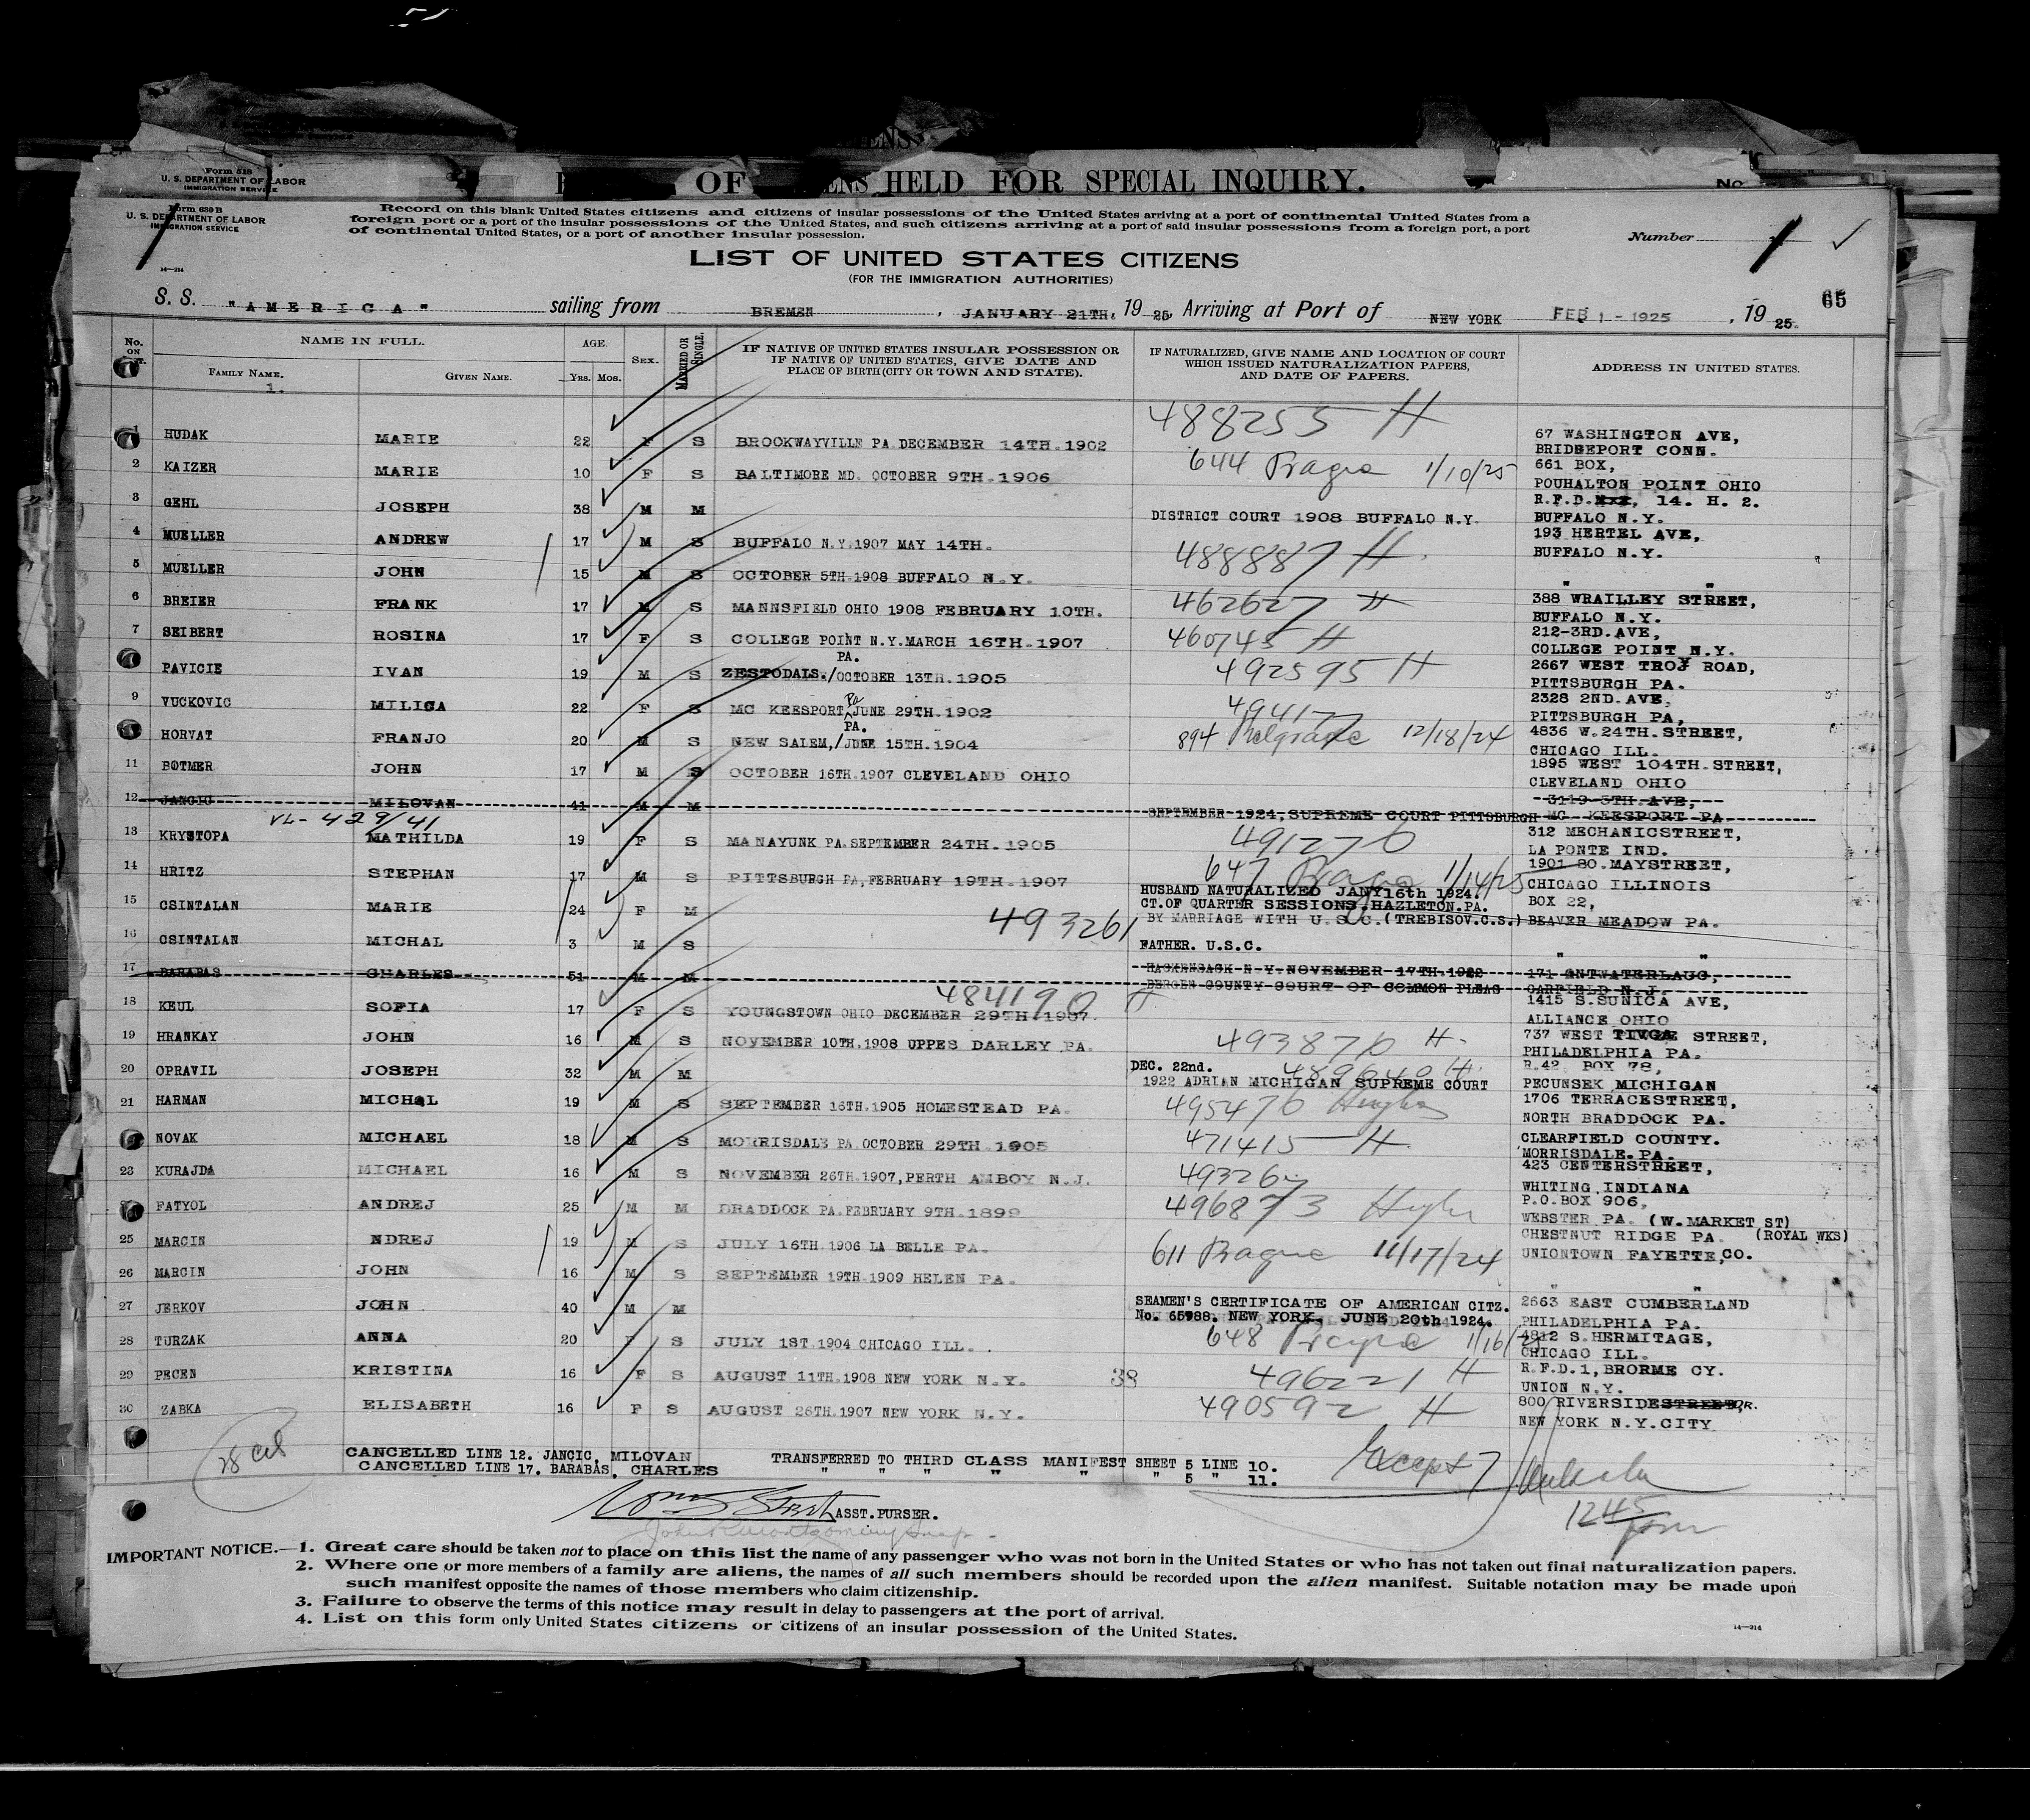 OF ENS HELD FOR SPECIAL INQUIRY.
Form 518
U. S. DEPARTMENT OF LABOR
IMMIGRATION SERVICE
No.
Form 630 B
U. S. DEPARTMENT OF LABOR
IMMIGRATION SERVICE
Record on this blank United States citizens and citizens of insular possessions of the United States arriving at a port of continental United States from a
foreign port or a port of the insular possessions of the United States, and such citizens arriving at a port of said insular possessions from a foreign port, a port
of continental United States, or a port of another insular possession.
Number 1 ✓
14—214
LIST OF UNITED STATES CITIZENS
(FOR THE IMMIGRATION AUTHORITIES)
65
S. S. "AMERICA" sailing from BREMEN, JANUARY 21TH, 1925, Arriving at Port of NEW YORK FEB 1 - 1925, 1925.
No. ON NAME IN FULL. AGE. SEX. MARRIED OR SINGLE. IF NATIVE OF UNITED STATES INSULAR POSSESSION OR IF NATURALIZED, GIVE NAME AND LOCATION OF COURT ADDRESS IN UNITED STATES.
IF NATIVE OF UNITED STATES, GIVE DATE AND WHICH ISSUED NATURALIZATION PAPERS,
FAMILY NAME. GIVEN NAME. YRS. MOS. PLACE OF BIRTH (CITY OR TOWN AND STATE). AND DATE OF PAPERS.
1.
1 HUDAK MARIE 22 F S BROOKWAYVILLE PA DECEMBER 14TH.1902 488255 H 67 WASHINGTON AVE,
BRIDGEPORT CONN.
2 KAIZER MARIE 10 F S BALTIMORE MD. OCTOBER 9TH.1906 644 Prague 1/10/25 661 BOX,
POUHALTON POINT OHIO
3 GEHL JOSEPH 38 M M DISTRICT COURT 1908 BUFFALO N.Y. R.F.D. 14. H. 2.
BUFFALO N.Y.
4 MUELLER ANDREW 17 M S BUFFALO N.Y.1907 MAY 14TH. 488887 H. 193 HERTEL AVE,
BUFFALO N.Y.
5 MUELLER JOHN 15 M S OCTOBER 5TH.1908 BUFFALO N.Y. " "
6 BREIER FRANK 17 M S MANNSFIELD OHIO 1908 FEBRUARY 10TH. 462627 H 388 WRAILLEY STREET,
BUFFALO N.Y.
7 SEIBERT ROSINA 17 F S COLLEGE POINT N.Y.MARCH 16TH.1907 460745 H 212-3RD.AVE,
COLLEGE POINT N.Y.
PAVICIE IVAN 19 M S ZESTODALS./PA. OCTOBER 13TH.1905 492595 H 2667 WEST TROY ROAD,
PITTSBURGH PA.
9 VUCKOVIC MILICA 22 F S MC KEESPORT Pa JUNE 29TH.1902 2328 2ND.AVE,
PITTSBURGH PA,
HORVAT FRANJO 20 M S NEW SALEM,/PA. JUNE 15TH.1904 894 Belgrade 12/18/24 4836 W.24TH.STREET,
CHICAGO ILL.
11 BOTMER JOHN 17 M S OCTOBER 16TH.1907 CLEVELAND OHIO 1895 WEST 104TH.STREET,
CLEVELAND OHIO
12 JANCIC MILOVAN 41 M M SEPTEMBER 1924,SUPREME COURT PITTSBURGH 3119 5TH.AVE,
MC KEESPORT PA
VL- 429/41
13 KRYSTOPA MATHILDA 19 F S MANAYUNK PA.SEPTEMBER 24TH.1905 491276 312 MECHANICSTREET,
LA PONTE IND.
14 HRITZ STEPHAN 17 M S PITTSBURGH PA,FEBRUARY 19TH.1907 647 Prague 1/14/25 1901 SO.MAYSTREET,
CHICAGO ILLINOIS
15 CSINTALAN MARIE 24 F M 493261 HUSBAND NATURALIZED JANY 16th 1924. BOX 22,
CT.OF QUARTER SESSIONS,HAZLETON.PA.
BY MARRIAGE WITH U.S.C.(TREBISOV.C.S.) BEAVER MEADOW PA.
16 CSINTALAN MICHAL 3 M S FATHER. U.S.C. " "
17 BARABAS CHARLES 51 M M HACKENSACK N.Y.NOVEMBER 17TH.1922 171 ONTWATERLAUG,
BERGEN COUNTY COURT OF COMMON PLEAS GARFIELD N.J.
18 KEUL SOFIA 17 F S YOUNGSTOWN OHIO DECEMBER 29TH.1907. 484190 H 1415 S.SUNICA AVE,
ALLIANCE OHIO
19 HRANKAY JOHN 16 M S NOVEMBER 10TH.1908 UPPES DARLEY PA. 493876 H. 737 WEST TIVGA STREET,
PHILADELPHIA PA.
20 OPRAVIL JOSEPH 32 M M DEC. 22nd. 489640 H. R.42 BOX 78,
1922 ADRIAN MICHIGAN SUPREME COURT PECUNSEK MICHIGAN
21 HARMAN MICHAL 19 M S SEPTEMBER 16TH.1905 HOMESTEAD PA. 495476 Hughes 1706 TERRACESTREET,
NORTH BRADDOCK PA.
NOVAK MICHAEL 18 M S MORRISDALE PA.OCTOBER 29TH.1905 471415 H. CLEARFIELD COUNTY.
MORRISDALE.PA.
23 KURAJDA MICHAEL 16 M S NOVEMBER 26TH.1907,PERTH AMBOY N.J. 423 CENTERSTREET,
WHITING INDIANA
FATYOL ANDREJ 25 M M BRADDOCK PA.FEBRUARY 9TH.1899 496873 P.O.BOX 906,
WEBSTER PA. (W.MARKET ST)
25 MARCIN NDREJ 19 M S JULY 16TH.1906 LA BELLE PA. 611 Prague 11/17/24 CHESTNUT RIDGE PA. (ROYAL WKS)
UNIONTOWN FAYETTE,CO.
26 MARCIN JOHN 16 M S SEPTEMBER 19TH.1909 HELEN PA. " "
27 JERKOV JOHN 40 M M SEAMEN'S CERTIFICATE OF AMERICAN CITZ. 2663 EAST CUMBERLAND
No. 65988. NEW YORK. JUNE 20th 1924. PHILADELPHIA PA.
28 TURZAK ANNA 20 F S JULY 1ST.1904 CHICAGO ILL. 648 Prague 1/16/25 4812 S.HERMITAGE,
CHICAGO ILL.
29 PECEN KRISTINA 16 F S AUGUST 11TH.1908 NEW YORK N.Y. 38 496221 H R.F.D.1,BRORME CY.
UNION N.Y.
30 ZABKA ELISABETH 16 F S AUGUST 26TH.1907 NEW YORK N.Y. 490592 H 800 RIVERSIDESTREET,DR.
NEW YORK N.Y.CITY
28 CANCELLED LINE 12. JANCIC, MILOVAN TRANSFERRED TO THIRD CLASS MANIFEST SHEET 5 LINE 10.
CANCELLED LINE 17. BARABAS, CHARLES " " " " " " 5 " 11.
Except 7
1245
ASST.PURSER.
IMPORTANT NOTICE.—1. Great care should be taken not to place on this list the name of any passenger who was not born in the United States or who has not taken out final naturalization papers.
2. Where one or more members of a family are aliens, the names of all such members should be recorded upon the alien manifest. Suitable notation may be made upon
such manifest opposite the names of those members who claim citizenship.
3. Failure to observe the terms of this notice may result in delay to passengers at the port of arrival.
4. List on this form only United States citizens or citizens of an insular possession of the United States.
14—214